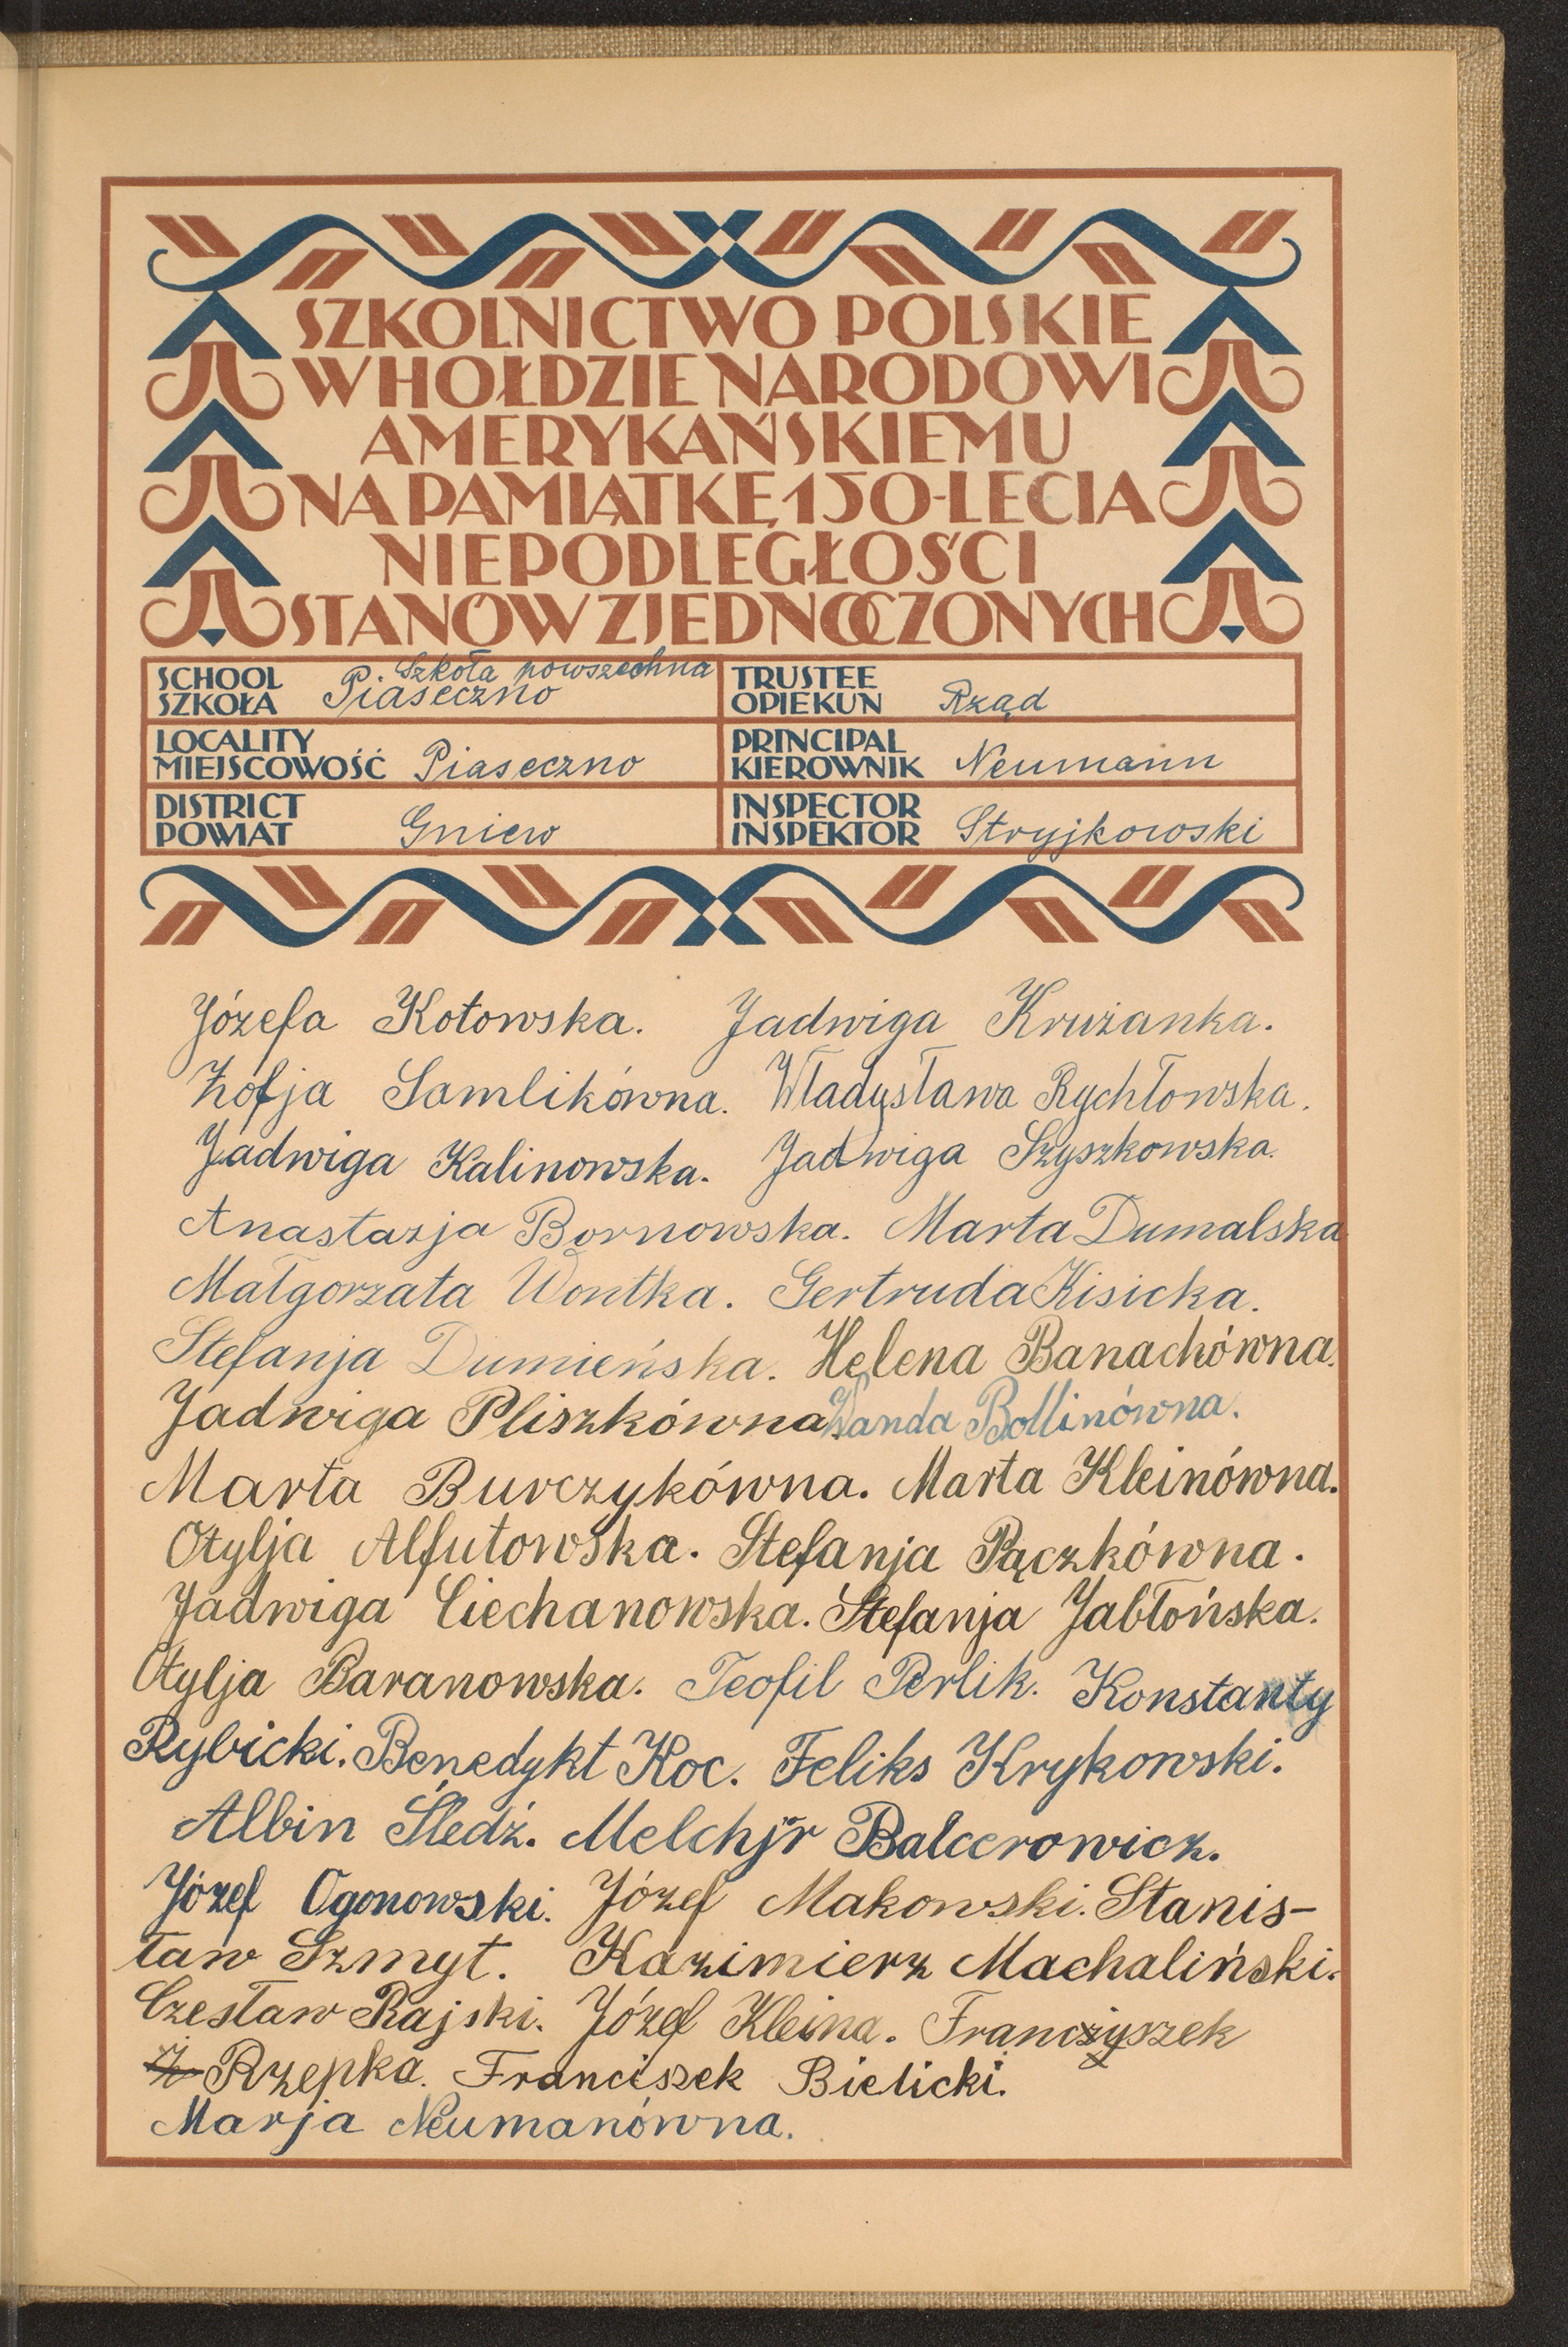 SZKOLNICTWO POLSKIE
W HOŁDZIE NARODOWI
AMERYKAŃSKIEMU
NA PAMIĄTKĘ 150-LECIA
NIEPODLEGŁOŚCI
STANÓW ZJEDNOCZONYCH
SCHOOL
SZKOŁA
Szkoła powszechna
Piaseczno
TRUSTEE
OPIEKUN
Rząd
LOCALITY
MIEJSCOWOŚĆ
Piaseczno
PRINCIPAL
KIEROWNIK
Neumann
DISTRICT
POWIAT
Gniew
INSPECTOR
INSPEKTOR
Stryjkowski
Józefa Kotowska. Jadwiga Krużanka.
Zofja Samlikówna. Władysława Rychłowska.
Jadwiga Kalinowska. Jadwiga Szyszkowska.
Anastazja Bornowska. Marta Dumalska
Małgorzata Wontka. Gertruda Kisicka.
Stefanja Dumieńska. Helena Banachówna.
Jadwiga Pliszkówna. Wanda Bollinówna.
Marta Burczykówna. Marta Kleinówna.
Otylja Alfutowska. Stefanja Pączkówna.
Jadwiga Ciechanowska. Stefanja Jabłońska.
Otylja Baranowska. Teofil Perlik. Konstanty
Rybicki. Benedykt Koc. Feliks Krykowski.
Albin Śledź. Melchjr Balcerowicz.
Józef Ogonowski. Józef Makowski. Stanis-
ław Szmyt. Kazimierz Machaliński.
Czesław Rajski. Józef Kleina. Franczyszek
Rzepka. Franciszek Bielicki.
Marja Neumanówna.